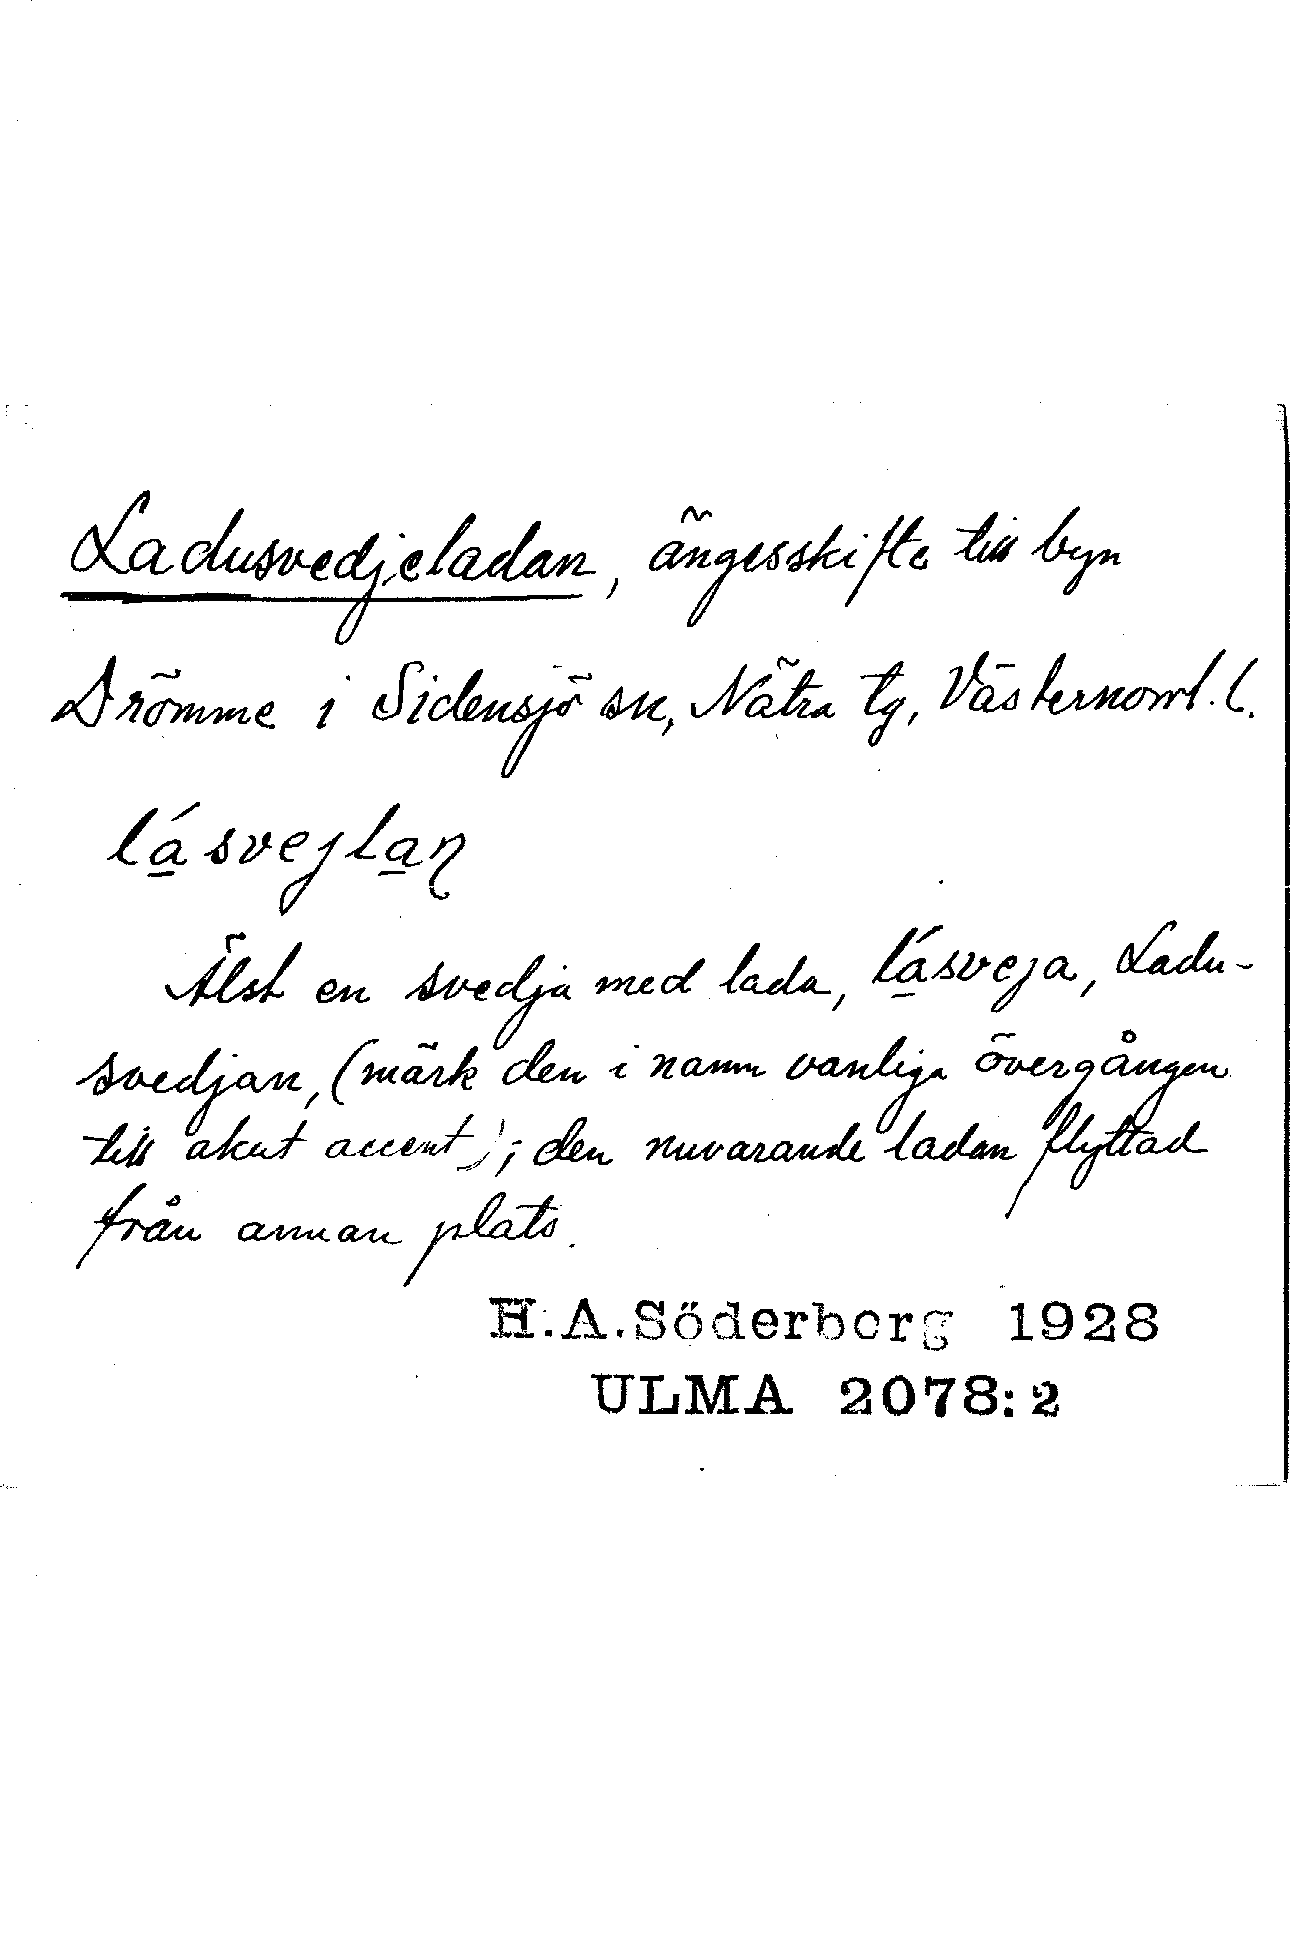 Ladusvedjeladan, ängesskifte till byn
Drömme i Sidensjö sn, Nätra tg, Västernorrl. l.
lá̱svejla̱ŋ
Älst en svedja med lada, lá̱sveja, Ladu-
svedjan, (märk den i namn vanliga övergången
till akut accent); den nuvarande ladan flyttad
från annan plats.
H.A.Söderborg 1928
ULMA 2078:2